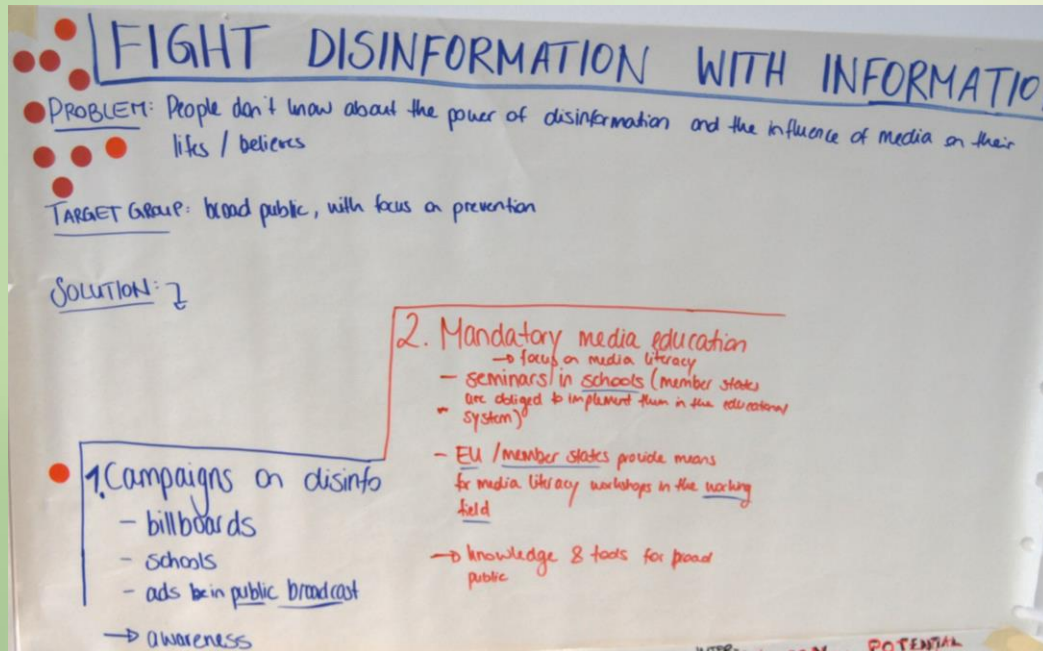 FIGHT DISINFORMATION WITH INFORMATIO
PROBLEM: People don't know about the power of disinformation and the influence of media on their
lifes / believes
TARGET GROUP: broad public, with focus on prevention
SOLUTION:
2. Mandatory media education
→ focus on media literacy
- seminars in schools (member states
are obliged to implement them in the educational
- system)
- EU / member states provide means
for media literacy workshops in the working
field
→ knowledge & tools for broad
public
1. Campaigns on disinfo
- billboards
- schools
- ads in public broadcast
→ awareness
INTER-
POTENTIAL